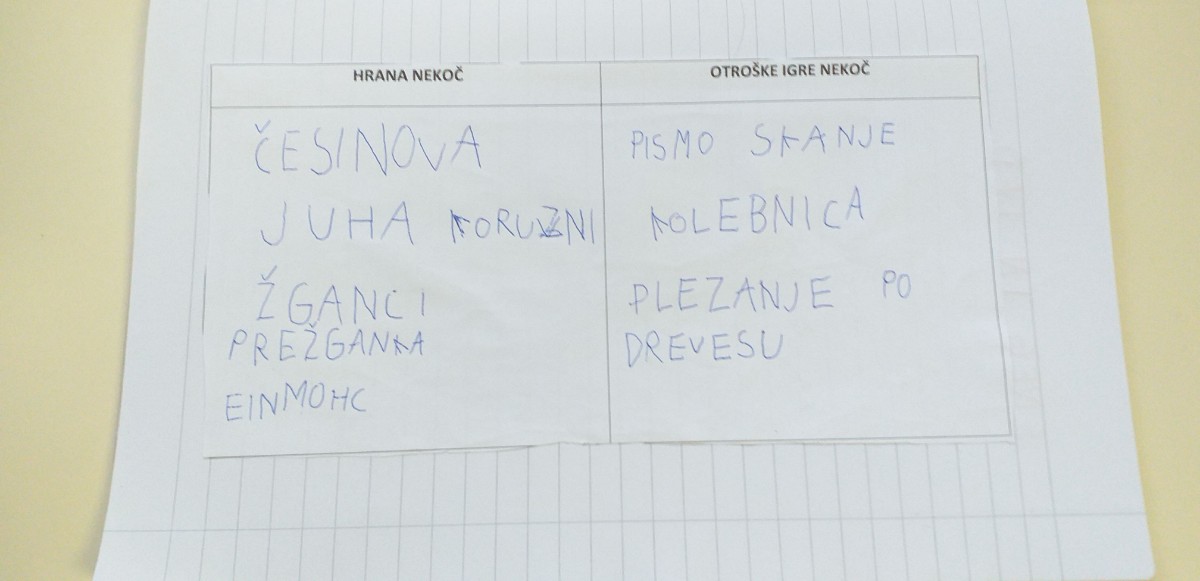 HRANA NEKOČ
ČESINOVA
JUHA KORUZNI
ŽGANCI
PREŽGANKA
EINMOHC
OTROŠKE IGRE NEKOČ
PISMO SKANJE
KOLEBNICA
PLEZANJE PO
DREVESU